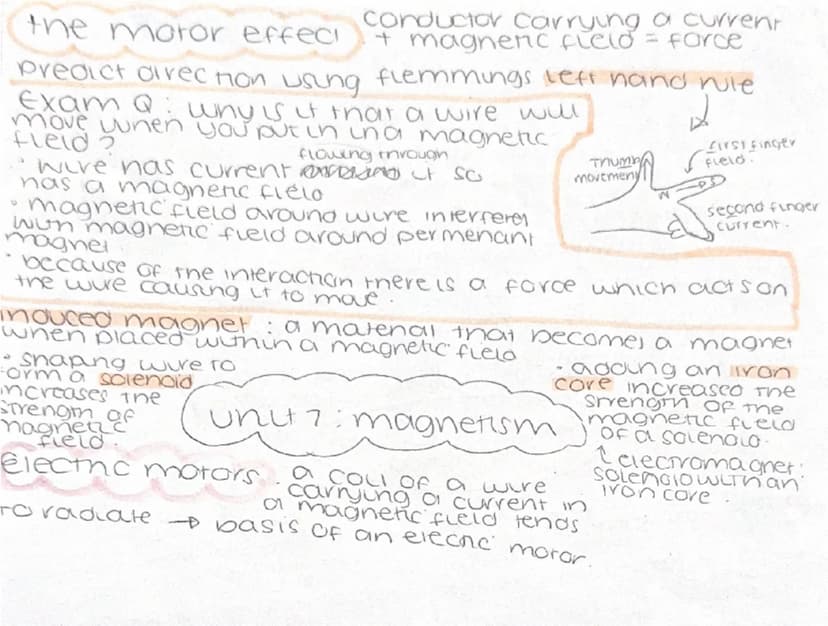 the motor effect
conductor carrying a current
+ magnetic field = force
predict direction using flemmings left hand rule
Exam Q : why is it that a wire will
move when you put in in a magnetic
field ?
flowing through
· wire has current it so
has a magnetic field
· magnetic field around wire interferes
with magnetic field around permenant
magnet
· because of the interaction there is a force which acts on
the wire causing it to move .
Thumb
movement
first finger
field .
second finger
current .
induced magnet : a material that becomes a magnet
when placed within a magnetic field
· shaping wire to
form a solenoid
increases the
strength of
magnetic
field .
unit 7 : magnetism
· adding an iron
core increased the
strength of the
magnetic field
of a solenoid .
↑ electromagnet :
solenoid with an
iron core .
electric motors . a coil of a wire
carrying a current in
a magnetic field tends
to radiate → basis of an elecric motor .